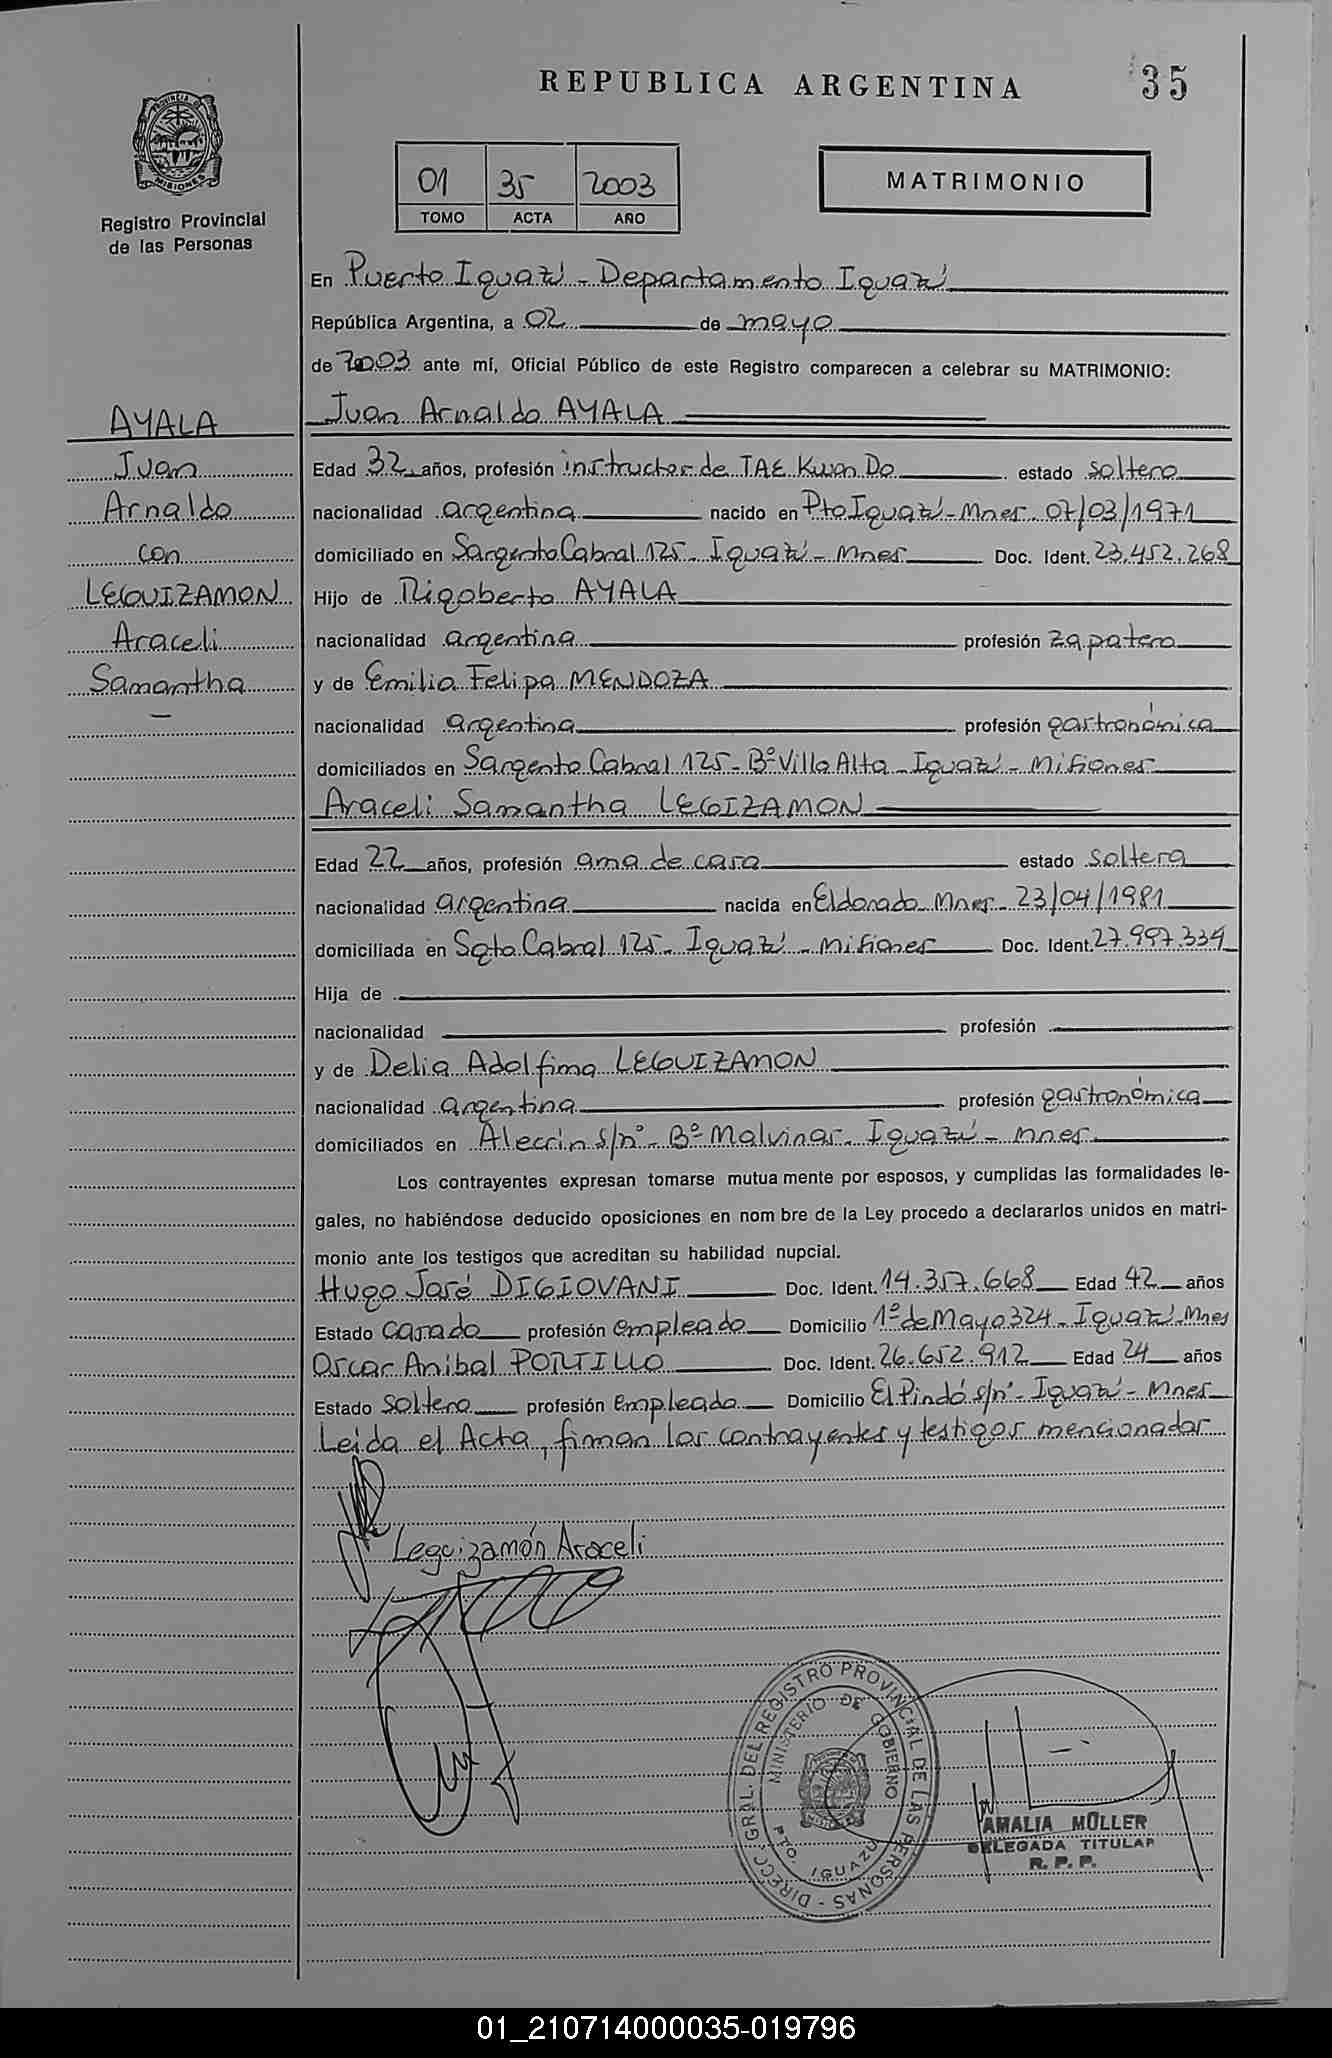 REPUBLICA ARGENTINA
35
PROVINCIA DE
MISIONES
Registro Provincial
de las Personas
01 35 2003
TOMO ACTA AÑO
MATRIMONIO
En Puerto Iguazú - Departamento Iguazú
República Argentina, a 02 de mayo
de 2003 ante mí, Oficial Público de este Registro comparecen a celebrar su MATRIMONIO:
AYALA
Juan
Arnaldo
con
LEGUIZAMON
Araceli
Samantha
Juan Arnaldo AYALA
Edad 32 años, profesión instructor de TAE Kwon Do estado soltero
nacionalidad argentina nacido en Pto Iguazú - Mnes. 07/03/1971
domiciliado en Sargento Cabral 125 - Iguazú - Mnes Doc. Ident. 23.452.268
Hijo de Rigoberto AYALA
nacionalidad argentina profesión zapatero
y de Emilia Felipa MENDOZA
nacionalidad argentina profesión gastronómica
domiciliados en Sargento Cabral 125 - Bº Villa Alta - Iguazú - Misiones
Araceli Samantha LEGIZAMON
Edad 22 años, profesión ama de casa estado soltera
nacionalidad argentina nacida en Eldorado Mnes - 23/04/1981
domiciliada en Sgto Cabral 125 - Iguazú - Misiones Doc. Ident. 27.997.334
Hija de
nacionalidad profesión
y de Delia Adolfina LEGUIZAMON
nacionalidad argentina profesión gastronómica
domiciliados en Alecrin s/nº - Bº Malvinas - Iguazú - Mnes
Los contrayentes expresan tomarse mutua mente por esposos, y cumplidas las formalidades le-
gales, no habiéndose deducido oposiciones en nom bre de la Ley procedo a declararlos unidos en matri-
monio ante los testigos que acreditan su habilidad nupcial.
Hugo José DIGIOVANI Doc. Ident. 14.357.668 Edad 42 años
Estado casado profesión empleado Domicilio 1º de Mayo 324 - Iguazú - Mnes
Oscar Anibal PORTILLO Doc. Ident. 26.652.912 Edad 24 años
Estado soltero profesión empleado Domicilio El Pindó s/nº - Iguazú - Mnes
Leida el Acta, firman los contrayentes y testigos mencionados
Leguizamón Araceli
DIRECC. GRAL. DEL REGISTRO PROVINCIAL DE LAS PERSONAS -
MINISTERIO DE GOBIERNO
PTO. IGUAZU
AMALIA MÜLLER
DELEGADA TITULAR
R. P. P.
01_210714000035-019796